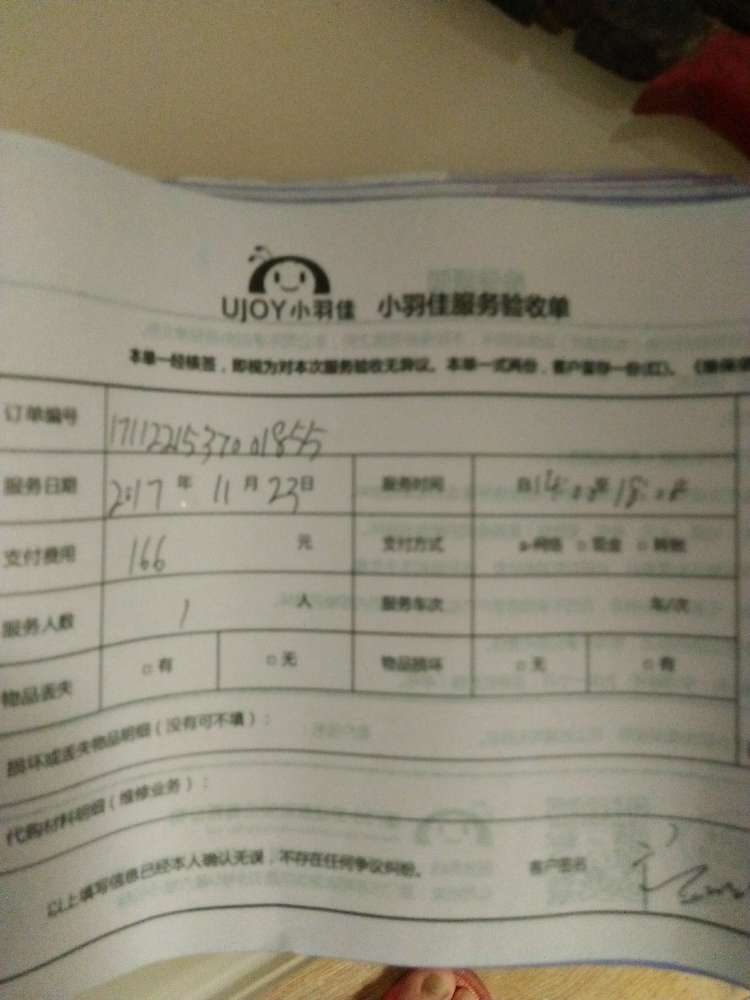 UJOY小羽佳 小羽佳服务验收单
本单一经核签，即视为对本次服务验收无异议。本单一式两份，客户留存一份(红)。
订单编号 1711221537001855
服务日期 2017年 11月 23日 服务时间 自14:00至18:00
支付费用 166 元 支付方式 网络 □ 现金 □ 转账
服务人数 1 人 服务车次 车/次
物品丢失 □ 有 □ 无 物品损坏 □ 无 □ 有
损坏或丢失物品明细（没有可不填）：
代购材料明细（维修业务）：
以上填写信息已经本人确认无误，不存在任何争议纠纷。 客户签名